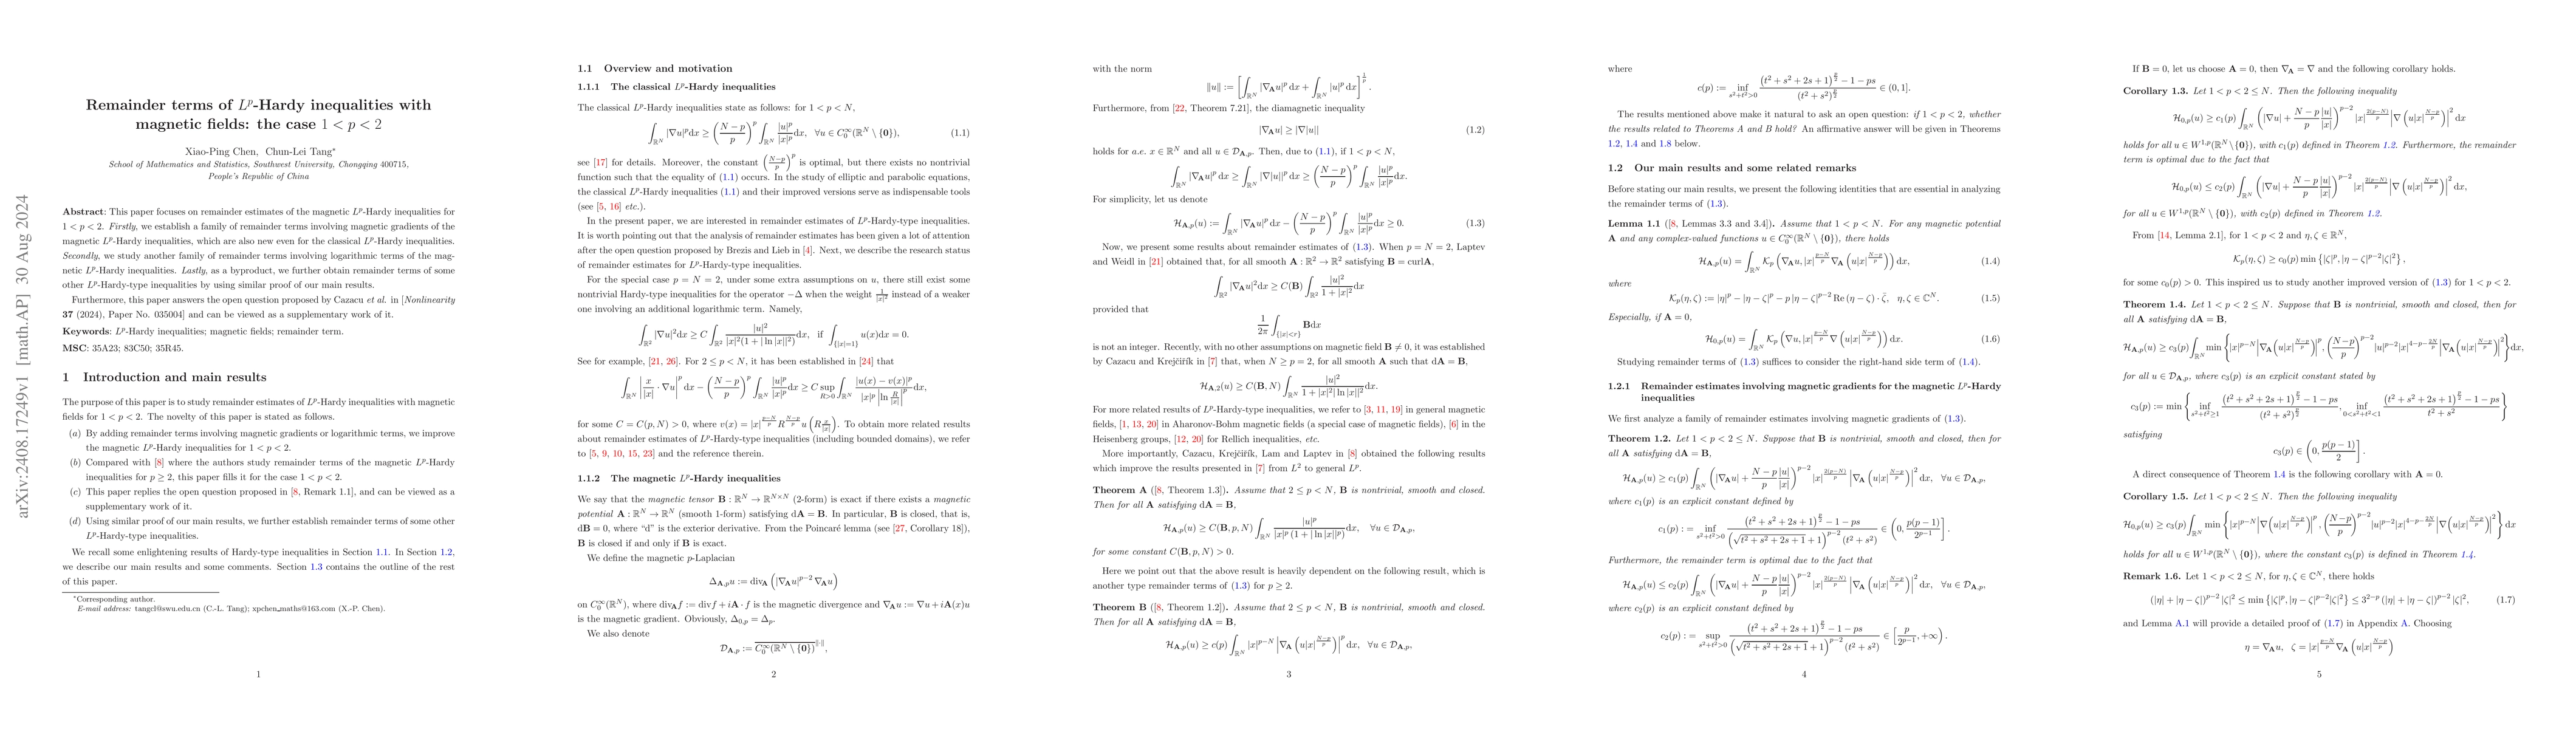 arXiv:2408.17249v1 [math.AP] 30 Aug 2024
Remainder terms of L^p-Hardy inequalities with
magnetic fields: the case 1 < p < 2
Xiao-Ping Chen, Chun-Lei Tang*
School of Mathematics and Statistics, Southwest University, Chongqing 400715,
People's Republic of China
Abstract: This paper focuses on remainder estimates of the magnetic L^p-Hardy inequalities for
1 < p < 2. Firstly, we establish a family of remainder terms involving magnetic gradients of the
magnetic L^p-Hardy inequalities, which are also new even for the classical L^p-Hardy inequalities.
Secondly, we study another family of remainder terms involving logarithmic terms of the mag-
netic L^p-Hardy inequalities. Lastly, as a byproduct, we further obtain remainder terms of some
other L^p-Hardy-type inequalities by using similar proof of our main results.
Furthermore, this paper answers the open question proposed by Cazacu et al. in [Nonlinearity
37 (2024), Paper No. 035004] and can be viewed as a supplementary work of it.
Keywords: L^p-Hardy inequalities; magnetic fields; remainder term.
MSC: 35A23; 83C50; 35R45.
1 Introduction and main results
The purpose of this paper is to study remainder estimates of L^p-Hardy inequalities with magnetic
fields for 1 < p < 2. The novelty of this paper is stated as follows.
(a) By adding remainder terms involving magnetic gradients or logarithmic terms, we improve
the magnetic L^p-Hardy inequalities for 1 < p < 2.
(b) Compared with [8] where the authors study remainder terms of the magnetic L^p-Hardy
inequalities for p ≥ 2, this paper fills it for the case 1 < p < 2.
(c) This paper replies the open question proposed in [8, Remark 1.1], and can be viewed as a
supplementary work of it.
(d) Using similar proof of our main results, we further establish remainder terms of some other
L^p-Hardy-type inequalities.
We recall some enlightening results of Hardy-type inequalities in Section 1.1. In Section 1.2,
we describe our main results and some comments. Section 1.3 contains the outline of the rest
of this paper.
*Corresponding author.
E-mail address: tangcl@swu.edu.cn (C.-L. Tang); xpchen_maths@163.com (X.-P. Chen).
1
1.1 Overview and motivation
1.1.1 The classical L^p-Hardy inequalities
The classical L^p-Hardy inequalities state as follows: for 1 < p < N,
∫_{ℝ^N} |∇u|^p dx ≥ ((N−p)/p)^p ∫_{ℝ^N} |u|^p/|x|^p dx, ∀u ∈ C_0^∞(ℝ^N \ {0}), (1.1)
see [17] for details. Moreover, the constant ((N−p)/p)^p is optimal, but there exists no nontrivial
function such that the equality of (1.1) occurs. In the study of elliptic and parabolic equations,
the classical L^p-Hardy inequalities (1.1) and their improved versions serve as indispensable tools
(see [5, 16] etc.).
In the present paper, we are interested in remainder estimates of L^p-Hardy-type inequalities.
It is worth pointing out that the analysis of remainder estimates has been given a lot of attention
after the open question proposed by Brezis and Lieb in [4]. Next, we describe the research status
of remainder estimates for L^p-Hardy-type inequalities.
For the special case p = N = 2, under some extra assumptions on u, there still exist some
nontrivial Hardy-type inequalities for the operator −Δ when the weight 1/|x|^2 instead of a weaker
one involving an additional logarithmic term. Namely,
∫_{ℝ^2} |∇u|^2 dx ≥ C ∫_{ℝ^2} |u|^2/(|x|^2(1 + |ln |x||^2)) dx, if ∫_{{|x|=1}} u(x)dx = 0.
See for example, [21, 26]. For 2 ≤ p < N, it has been established in [24] that
∫_{ℝ^N} |x/|x| · ∇u|^p dx − ((N−p)/p)^p ∫_{ℝ^N} |u|^p/|x|^p dx ≥ C sup_{R>0} ∫_{ℝ^N} |u(x) − v(x)|^p/(|x|^p |ln R/|x||^p) dx,
for some C = C(p, N) > 0, where v(x) = |x|^{(p−N)/p} R^{(N−p)/p} u(R x/|x|). To obtain more related results
about remainder estimates of L^p-Hardy-type inequalities (including bounded domains), we refer
to [5, 9, 10, 15, 23] and the reference therein.
1.1.2 The magnetic L^p-Hardy inequalities
We say that the magnetic tensor B : ℝ^N → ℝ^{N×N} (2-form) is exact if there exists a magnetic
potential A : ℝ^N → ℝ^N (smooth 1-form) satisfying dA = B. In particular, B is closed, that is,
dB = 0, where "d" is the exterior derivative. From the Poincaré lemma (see [27, Corollary 18]),
B is closed if and only if B is exact.
We define the magnetic p-Laplacian
Δ_{A,p}u := div_A (|∇_A u|^{p−2} ∇_A u)
on C_0^∞(ℝ^N), where div_A f := divf + iA · f is the magnetic divergence and ∇_A u := ∇u + iA(x)u
is the magnetic gradient. Obviously, Δ_{0,p} = Δ_p.
We also denote
𝒟_{A,p} := \overline{C_0^∞(ℝ^N \ {0})}^{‖·‖},
2
with the norm
‖u‖ := [∫_{ℝ^N} |∇_A u|^p dx + ∫_{ℝ^N} |u|^p dx]^{1/p}.
Furthermore, from [22, Theorem 7.21], the diamagnetic inequality
|∇_A u| ≥ |∇|u|| (1.2)
holds for a.e. x ∈ ℝ^N and all u ∈ 𝒟_{A,p}. Then, due to (1.1), if 1 < p < N,
∫_{ℝ^N} |∇_A u|^p dx ≥ ∫_{ℝ^N} |∇|u||^p dx ≥ ((N−p)/p)^p ∫_{ℝ^N} |u|^p/|x|^p dx.
For simplicity, let us denote
ℋ_{A,p}(u) := ∫_{ℝ^N} |∇_A u|^p dx − ((N−p)/p)^p ∫_{ℝ^N} |u|^p/|x|^p dx ≥ 0. (1.3)
Now, we present some results about remainder estimates of (1.3). When p = N = 2, Laptev
and Weidl in [21] obtained that, for all smooth A : ℝ^2 → ℝ^2 satisfying B = curlA,
∫_{ℝ^2} |∇_A u|^2 dx ≥ C(B) ∫_{ℝ^2} |u|^2/(1 + |x|^2) dx
provided that
1/(2π) ∫_{{|x|<r}} B dx
is not an integer. Recently, with no other assumptions on magnetic field B ≠ 0, it was established
by Cazacu and Krejčiřík in [7] that, when N ≥ p = 2, for all smooth A such that dA = B,
ℋ_{A,2}(u) ≥ C(B, N) ∫_{ℝ^N} |u|^2/(1 + |x|^2|ln |x||^2) dx.
For more related results of L^p-Hardy-type inequalities, we refer to [3, 11, 19] in general magnetic
fields, [1, 13, 20] in Aharonov-Bohm magnetic fields (a special case of magnetic fields), [6] in the
Heisenberg groups, [12, 20] for Rellich inequalities, etc.
More importantly, Cazacu, Krejčiřík, Lam and Laptev in [8] obtained the following results
which improve the results presented in [7] from L^2 to general L^p.
Theorem A ([8, Theorem 1.3]). Assume that 2 ≤ p < N, B is nontrivial, smooth and closed.
Then for all A satisfying dA = B,
ℋ_{A,p}(u) ≥ C(B, p, N) ∫_{ℝ^N} |u|^p/(|x|^p (1 + |ln |x||^p)) dx, ∀u ∈ 𝒟_{A,p},
for some constant C(B, p, N) > 0.
Here we point out that the above result is heavily dependent on the following result, which is
another type remainder terms of (1.3) for p ≥ 2.
Theorem B ([8, Theorem 1.2]). Assume that 2 ≤ p < N, B is nontrivial, smooth and closed.
Then for all A satisfying dA = B,
ℋ_{A,p}(u) ≥ c(p) ∫_{ℝ^N} |x|^{p−N} |∇_A (u|x|^{(N−p)/p})|^p dx, ∀u ∈ 𝒟_{A,p},
3
where
c(p) := inf_{s^2+t^2>0} ((t^2 + s^2 + 2s + 1)^{p/2} − 1 − ps)/((t^2 + s^2)^{p/2}) ∈ (0, 1].
The results mentioned above make it natural to ask an open question: if 1 < p < 2, whether
the results related to Theorems A and B hold? An affirmative answer will be given in Theorems
1.2, 1.4 and 1.8 below.
1.2 Our main results and some related remarks
Before stating our main results, we present the following identities that are essential in analyzing
the remainder terms of (1.3).
Lemma 1.1 ([8, Lemmas 3.3 and 3.4]). Assume that 1 < p < N. For any magnetic potential
A and any complex-valued functions u ∈ C_0^∞(ℝ^N \ {0}), there holds
ℋ_{A,p}(u) = ∫_{ℝ^N} 𝒦_p (∇_A u, |x|^{(p−N)/p} ∇_A (u|x|^{(N−p)/p})) dx, (1.4)
where
𝒦_p(η, ζ) := |η|^p − |η − ζ|^p − p |η − ζ|^{p−2} Re (η − ζ) · ζ̄, η, ζ ∈ ℂ^N. (1.5)
Especially, if A = 0,
ℋ_{0,p}(u) = ∫_{ℝ^N} 𝒦_p (∇u, |x|^{(p−N)/p} ∇ (u|x|^{(N−p)/p})) dx. (1.6)
Studying remainder terms of (1.3) suffices to consider the right-hand side term of (1.4).
1.2.1 Remainder estimates involving magnetic gradients for the magnetic L^p-Hardy
inequalities
We first analyze a family of remainder estimates involving magnetic gradients of (1.3).
Theorem 1.2. Let 1 < p < 2 ≤ N. Suppose that B is nontrivial, smooth and closed, then for
all A satisfying dA = B,
ℋ_{A,p}(u) ≥ c_1(p) ∫_{ℝ^N} (|∇_A u| + (N−p)/p |u|/|x|)^{p−2} |x|^{2(p−N)/p} |∇_A (u|x|^{(N−p)/p})|^2 dx, ∀u ∈ 𝒟_{A,p},
where c_1(p) is an explicit constant defined by
c_1(p) := inf_{s^2+t^2>0} ((t^2 + s^2 + 2s + 1)^{p/2} − 1 − ps)/((√(t^2 + s^2 + 2s + 1) + 1)^{p−2} (t^2 + s^2)) ∈ (0, p(p−1)/2^{p−1}].
Furthermore, the remainder term is optimal due to the fact that
ℋ_{A,p}(u) ≤ c_2(p) ∫_{ℝ^N} (|∇_A u| + (N−p)/p |u|/|x|)^{p−2} |x|^{2(p−N)/p} |∇_A (u|x|^{(N−p)/p})|^2 dx, ∀u ∈ 𝒟_{A,p},
where c_2(p) is an explicit constant defined by
c_2(p) := sup_{s^2+t^2>0} ((t^2 + s^2 + 2s + 1)^{p/2} − 1 − ps)/((√(t^2 + s^2 + 2s + 1) + 1)^{p−2} (t^2 + s^2)) ∈ [p/2^{p−1}, +∞).
4
If B = 0, let us choose A = 0, then ∇_A = ∇ and the following corollary holds.
Corollary 1.3. Let 1 < p < 2 ≤ N. Then the following inequality
ℋ_{0,p}(u) ≥ c_1(p) ∫_{ℝ^N} (|∇u| + (N−p)/p |u|/|x|)^{p−2} |x|^{2(p−N)/p} |∇ (u|x|^{(N−p)/p})|^2 dx
holds for all u ∈ W^{1,p}(ℝ^N\{0}), with c_1(p) defined in Theorem 1.2. Furthermore, the remainder
term is optimal due to the fact that
ℋ_{0,p}(u) ≤ c_2(p) ∫_{ℝ^N} (|∇u| + (N−p)/p |u|/|x|)^{p−2} |x|^{2(p−N)/p} |∇ (u|x|^{(N−p)/p})|^2 dx,
for all u ∈ W^{1,p}(ℝ^N \ {0}), with c_2(p) defined in Theorem 1.2.
From [14, Lemma 2.1], for 1 < p < 2 and η, ζ ∈ ℝ^N,
𝒦_p(η, ζ) ≥ c_0(p) min {|ζ|^p, |η − ζ|^{p−2}|ζ|^2},
for some c_0(p) > 0. This inspired us to study another improved version of (1.3) for 1 < p < 2.
Theorem 1.4. Let 1 < p < 2 ≤ N. Suppose that B is nontrivial, smooth and closed, then for
all A satisfying dA = B,
ℋ_{A,p}(u) ≥ c_3(p) ∫_{ℝ^N} min {|x|^{p−N} |∇_A (u|x|^{(N−p)/p})|^p, ((N−p)/p)^{p−2} |u|^{p−2}|x|^{4−p−2N/p} |∇_A (u|x|^{(N−p)/p})|^2} dx,
for all u ∈ 𝒟_{A,p}, where c_3(p) is an explicit constant stated by
c_3(p) := min {inf_{s^2+t^2≥1} ((t^2 + s^2 + 2s + 1)^{p/2} − 1 − ps)/((t^2 + s^2)^{p/2}), inf_{0<s^2+t^2<1} ((t^2 + s^2 + 2s + 1)^{p/2} − 1 − ps)/(t^2 + s^2)}
satisfying
c_3(p) ∈ (0, p(p−1)/2].
A direct consequence of Theorem 1.4 is the following corollary with A = 0.
Corollary 1.5. Let 1 < p < 2 ≤ N. Then the following inequality
ℋ_{0,p}(u) ≥ c_3(p) ∫_{ℝ^N} min {|x|^{p−N} |∇(u|x|^{(N−p)/p})|^p, ((N−p)/p)^{p−2} |u|^{p−2}|x|^{4−p−2N/p} |∇(u|x|^{(N−p)/p})|^2} dx
holds for all u ∈ W^{1,p}(ℝ^N \ {0}), where the constant c_3(p) is defined in Theorem 1.4.
Remark 1.6. Let 1 < p < 2 ≤ N, for η, ζ ∈ ℂ^N, there holds
(|η| + |η − ζ|)^{p−2} |ζ|^2 ≤ min {|ζ|^p, |η − ζ|^{p−2}|ζ|^2} ≤ 3^{2−p} (|η| + |η − ζ|)^{p−2} |ζ|^2, (1.7)
and Lemma A.1 will provide a detailed proof of (1.7) in Appendix A. Choosing
η = ∇_A u, ζ = |x|^{(p−N)/p} ∇_A (u|x|^{(N−p)/p})
5